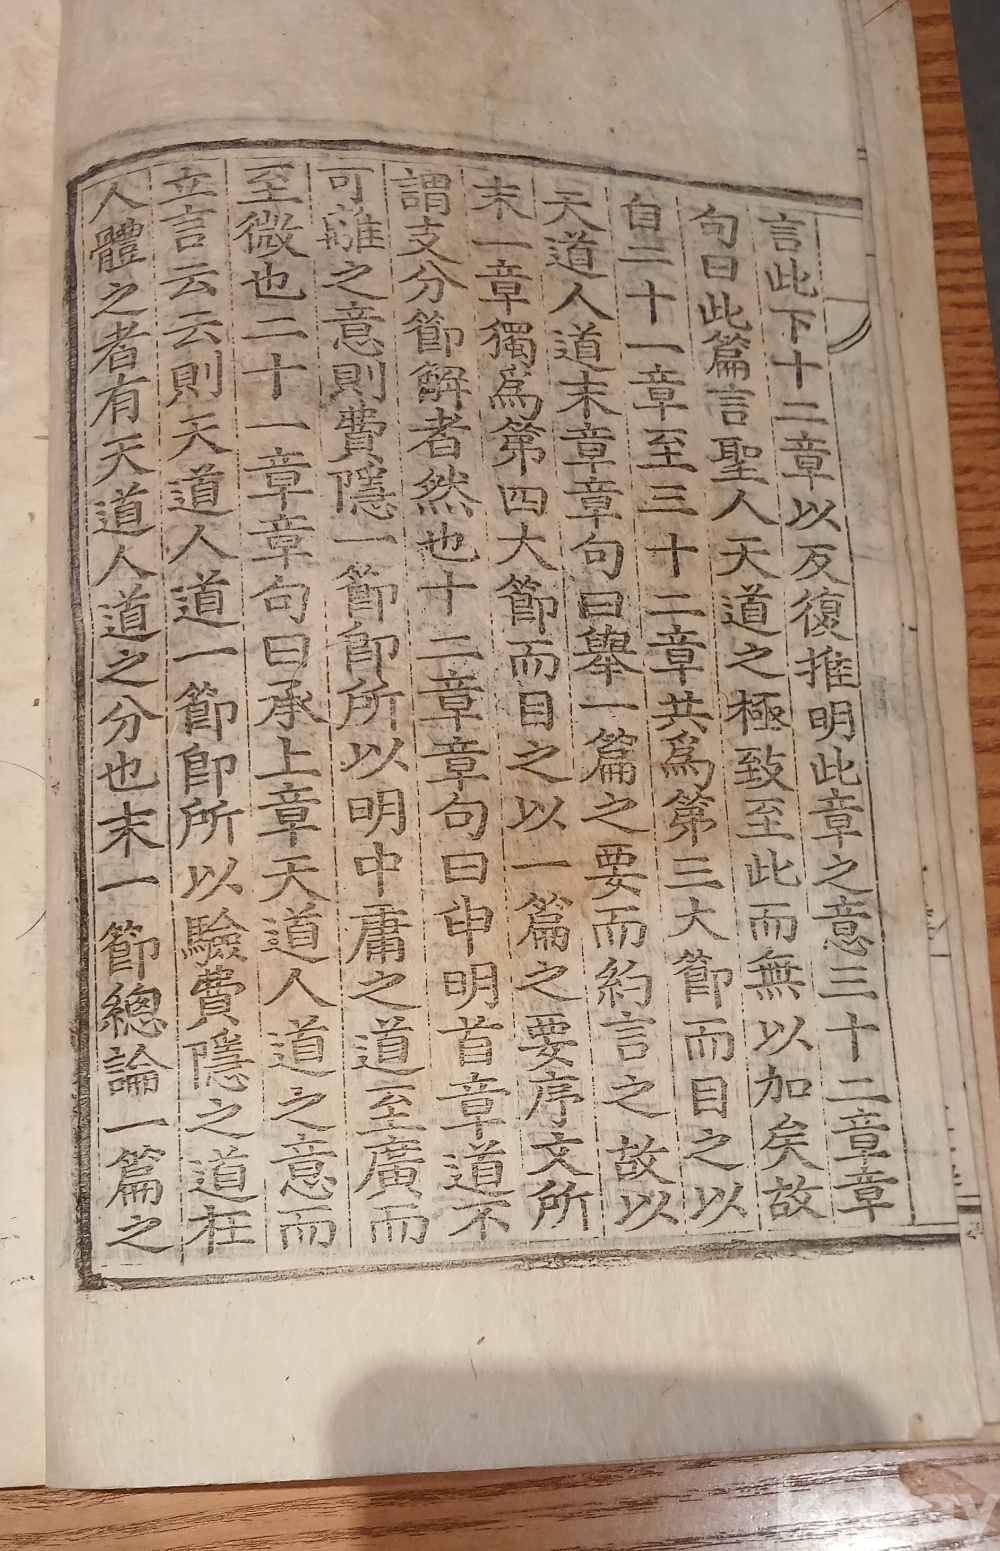 言此下十二章以反復推明此章之意三十二章章
句曰此篇言聖人天道之極致至此而無以加矣故
自二十一章至三十二章共爲第三大節而目之以
天道人道末章章句曰擧一篇之要而約言之故以
末一章獨爲第四大節而目之以一篇之要序文所
謂支分節解者然也十二章章句曰申明首章道不
可離之意則費隱一節卽所以明中庸之道至廣而
至微也二十一章章句曰承上章天道人道之意而
立言云云則天道人道一節卽所以驗費隱之道在
人體之者有天道人道之分也末一節總論一篇之